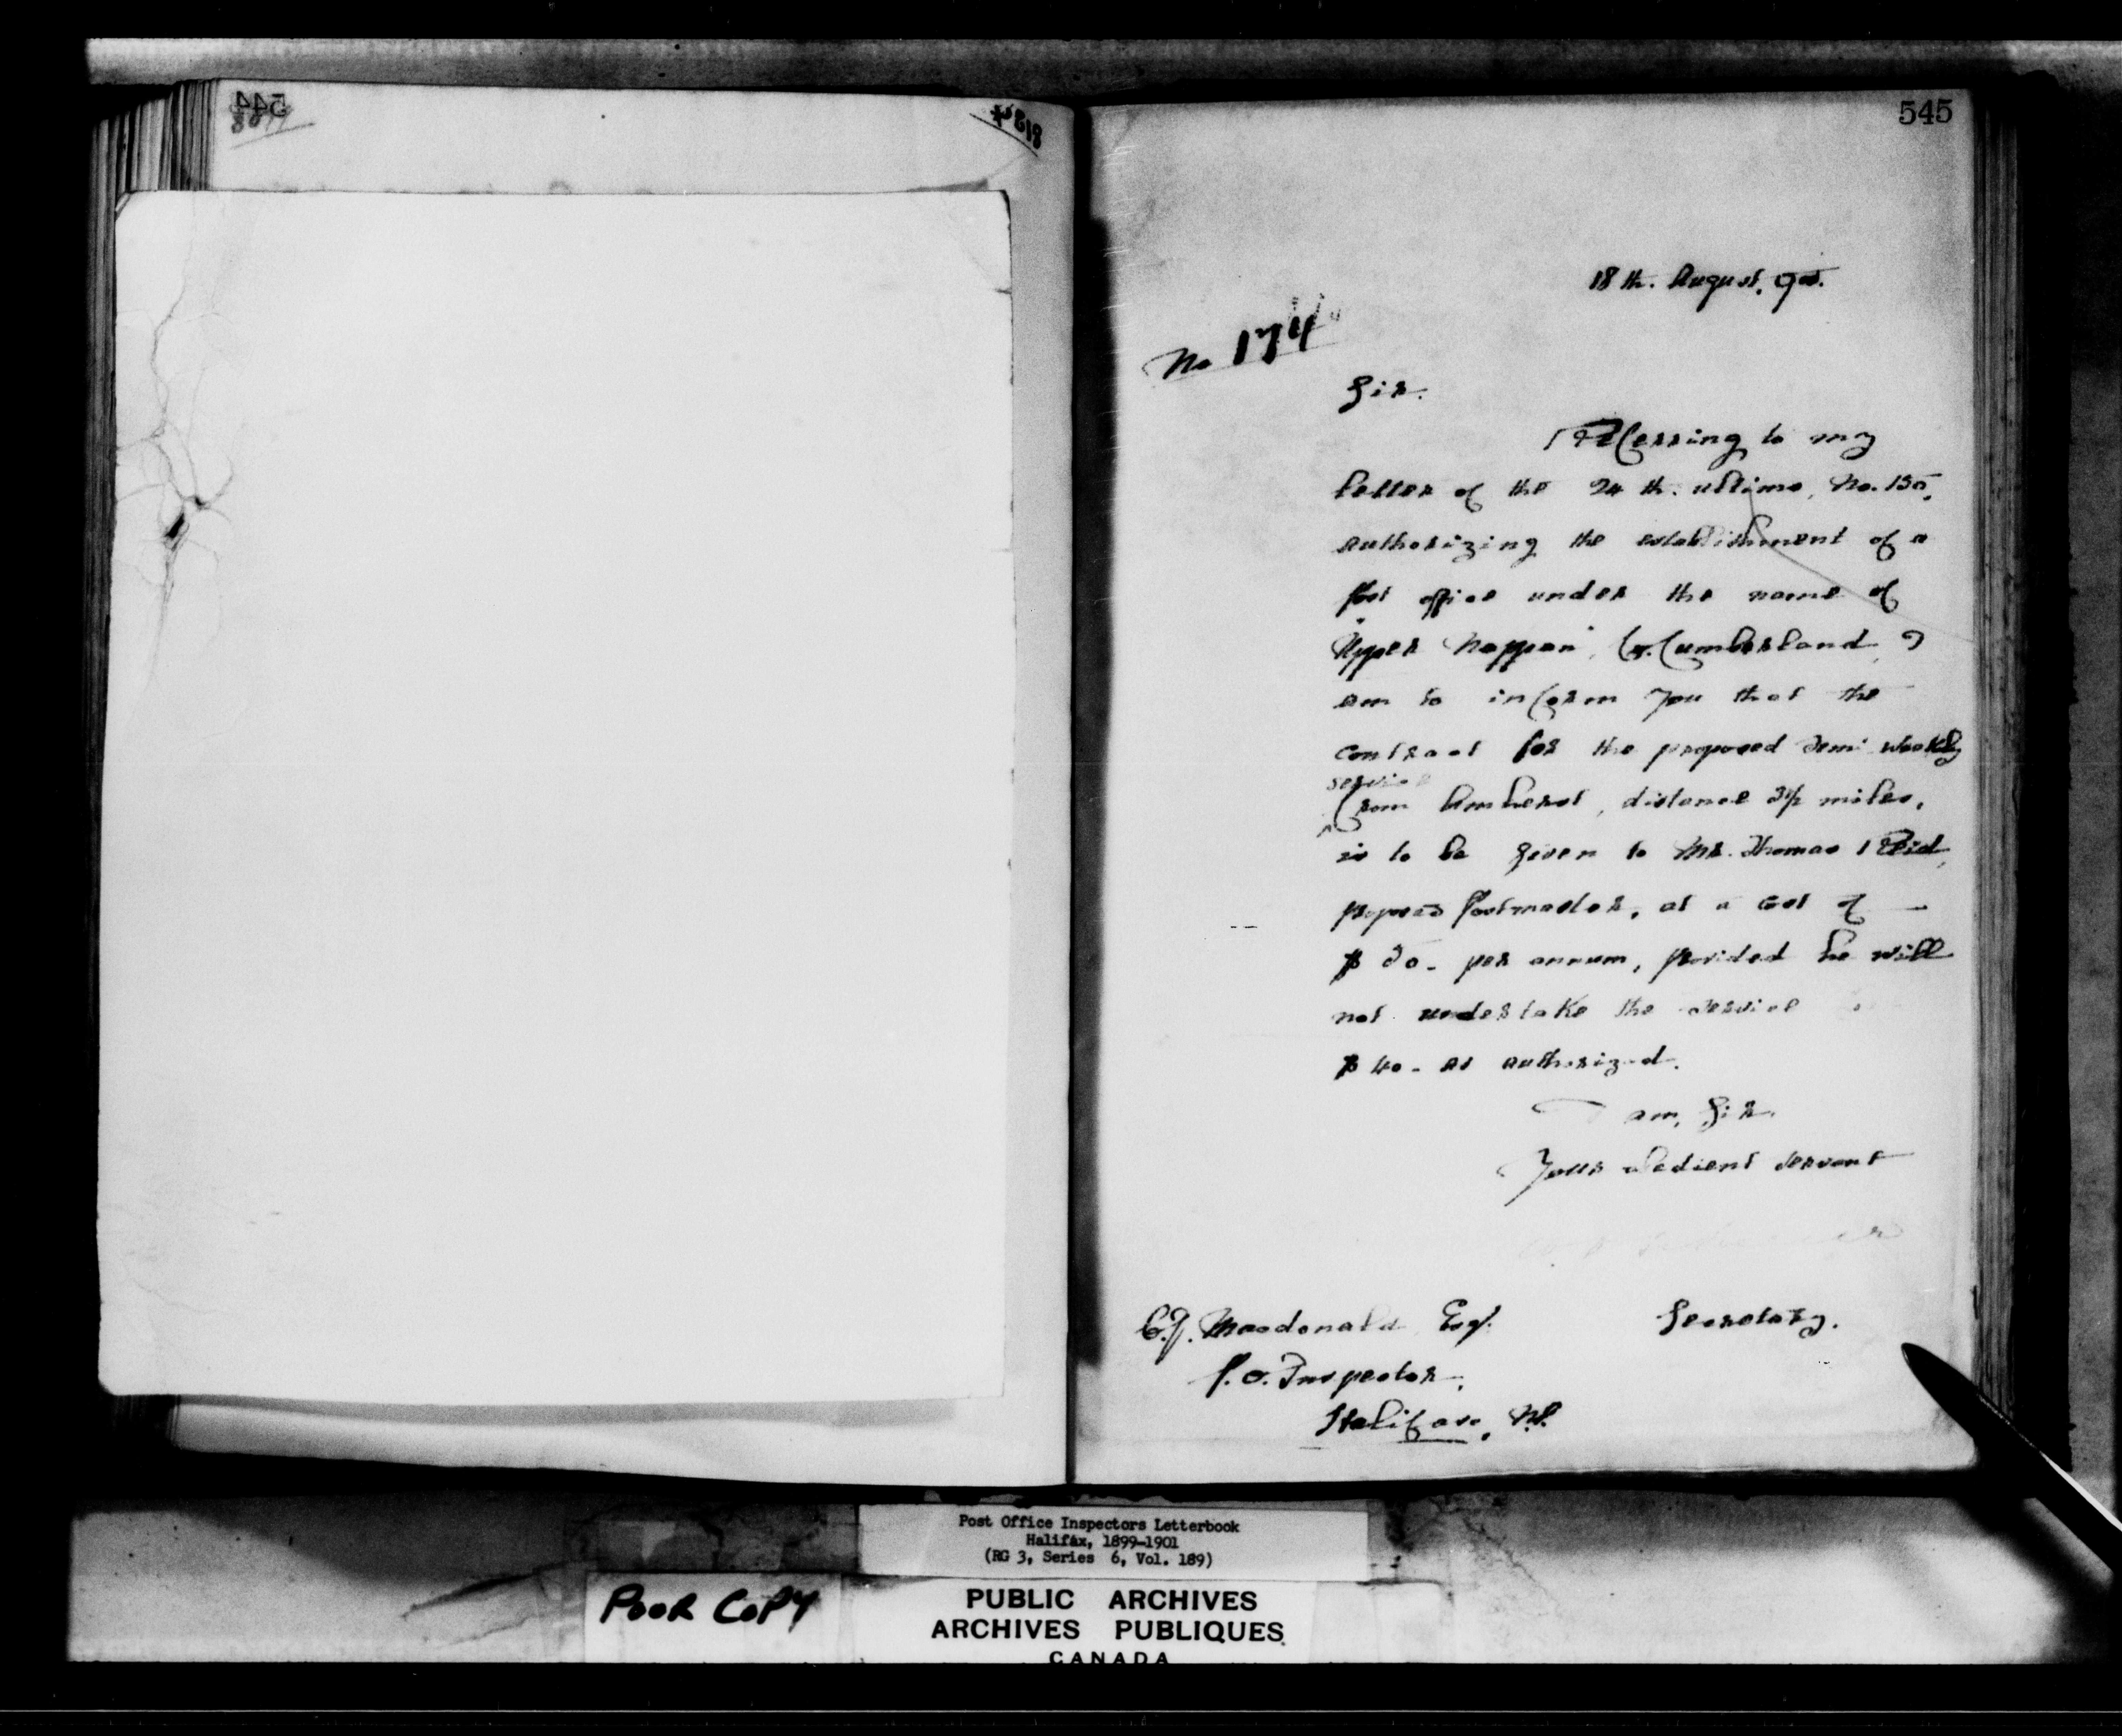 544
545
18th. August, 900.
No 174
Sir.
Referring to my
letter of the 24th. ultimo, No. 150,
authorizing the establishment of a
Post office under the name of
"Upper Nappan", Co. Cumberland, I
am to inform you that the
contract for the proposed semi weekly
service
from Amherst, distance 3½ miles,
is to be given to Mr. Thomas Reid,
proposed Postmaster, at a cost of
$50- per annum, provided he will
not undertake the service
$40- as authorized.
I am, Sir.
Your obedient servant
Secretary.
C.J. Macdonald Esq.
P.O. Inspector,
Halifax, N.S.
Post Office Inspectors Letterbook
Halifax, 1899-1901
(RG 3, Series 6, Vol. 189)
POOR COPY
PUBLIC ARCHIVES
ARCHIVES PUBLIQUES
CANADA